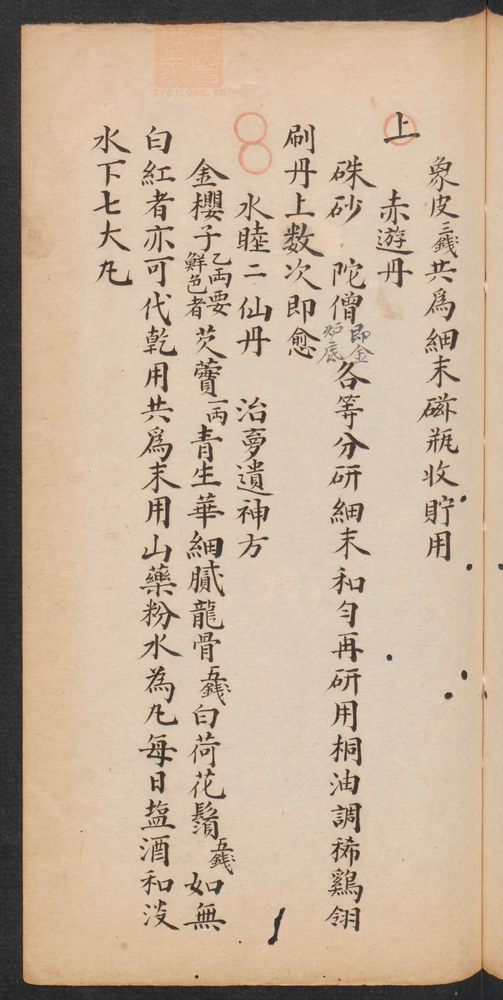 象皮三錢共爲細末磁瓶收貯用
上 赤遊丹
硃砂 陀僧即金炉底各等分研細末和勻再研用桐油調稀鷄翎
刷丹上数次即愈
水睦二仙丹 治夢遺神方
金櫻子乙両要鮮色者芡蕒一両青生華細膩龍骨五錢白荷花鬚五錢如無
白紅者亦可代乾用共爲末用山藥粉水為凡每日塩酒和没
水下七大凡